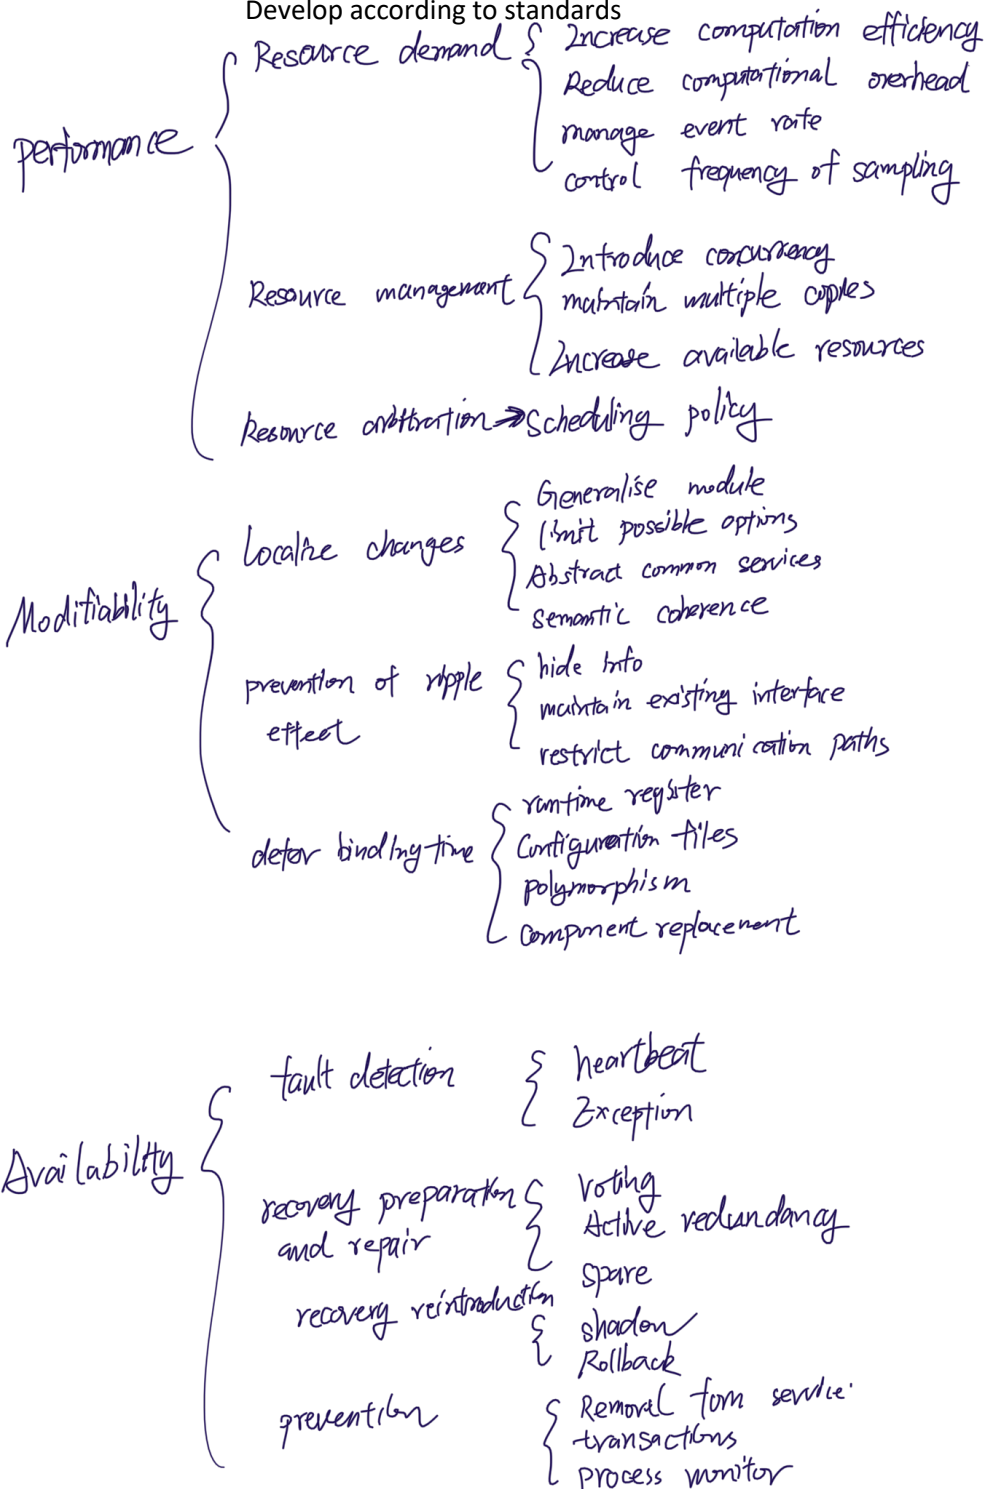 Develop according to standards
performance
Resource demand
Increase computation efficiency
Reduce computational overhead
manage event rate
control frequency of sampling
Resource management
Introduce concurrency
maintain multiple copies
Increase available resources
Resource arbitration → Scheduling policy
Modifiability
Localize changes
Generalise module
limit possible options
Abstract common services
semantic coherence
prevention of ripple
effect
hide info
maintain existing interface
restrict communication paths
defer binding time
runtime register
Configuration files
polymorphism
component replacement
Availability
fault detection
heartbeat
Exception
recovery preparation
and repair
Voting
Active redundancy
spare
recovery reintroduction
shadow
Rollback
prevention
Removal form service
transactions
process monitor